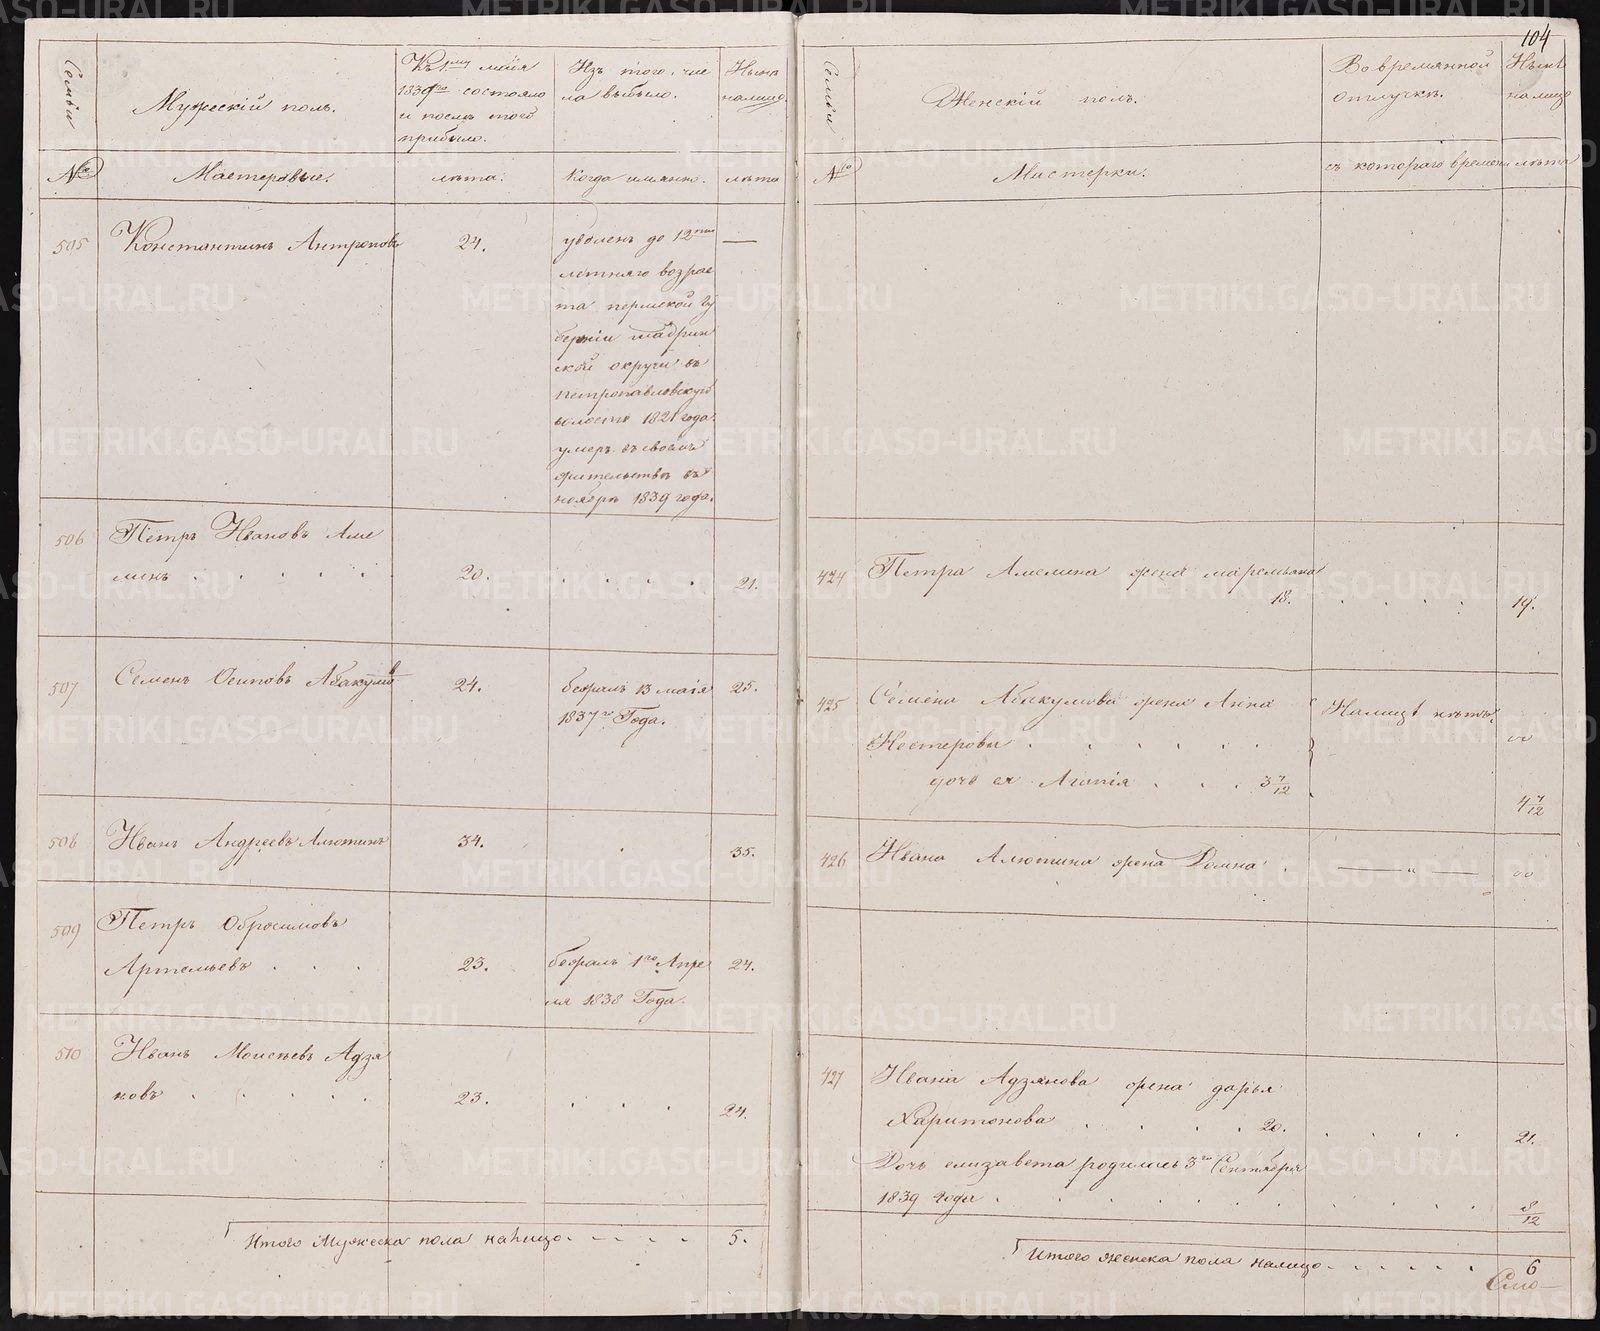 104
Семьи
Мужескій полъ.
Къ 1му маія
1839го состояло
и послѣ того
прибыло.
Изъ того чис
ла выбыло.
Нынѣ
налицо.
№
Мастеровые.
лѣта.
Когда имянно.
лѣта
505
Константинъ Антроповъ
24.
уволенъ до 12ти
лѣтняго возрас
та пермской гу
берніи шадрин
ской округи въ
петропавловскую
волость 1821 года.
умеръ въ своемъ
жительствѣ въ
ноябрѣ 1839 года.
—
506
Петръ Ивановъ Аме
линъ
20.
21.
507
Семенъ Осиповъ Абакумов
24.
бежалъ 13 маія
1837го Года.
25.
508
Иванъ Андреевъ Алютинъ
34.
35.
509
Петръ Обросимовъ
Артемьевъ
23.
бежалъ 1го Апре
ля 1838 Года.
24.
510
Иванъ Моисеевъ Адзя
новъ
23.
24.
Итого Мужеска пола налицо
5.
Семьи
Женскій полъ.
Во времянной
отлучкѣ.
Нынѣ
налицо
№
Мастерки.
съ котораго времени
лѣта
424
Петра Амелина жена маремьяна
18.
19.
425
Семена Абакумова жена Анна
Нестерова
Налицо нѣтъ.
дочь ея Агапія
3 7/12
4 7/12
426
Ивана Алютина жена Домна
— " —
427
Ивана Адзянова жена дарья
Харитонова
20.
21.
Дочь елизавета родилась 3го Сентября
1839 года
8/12
Итого женска пола налицо
6